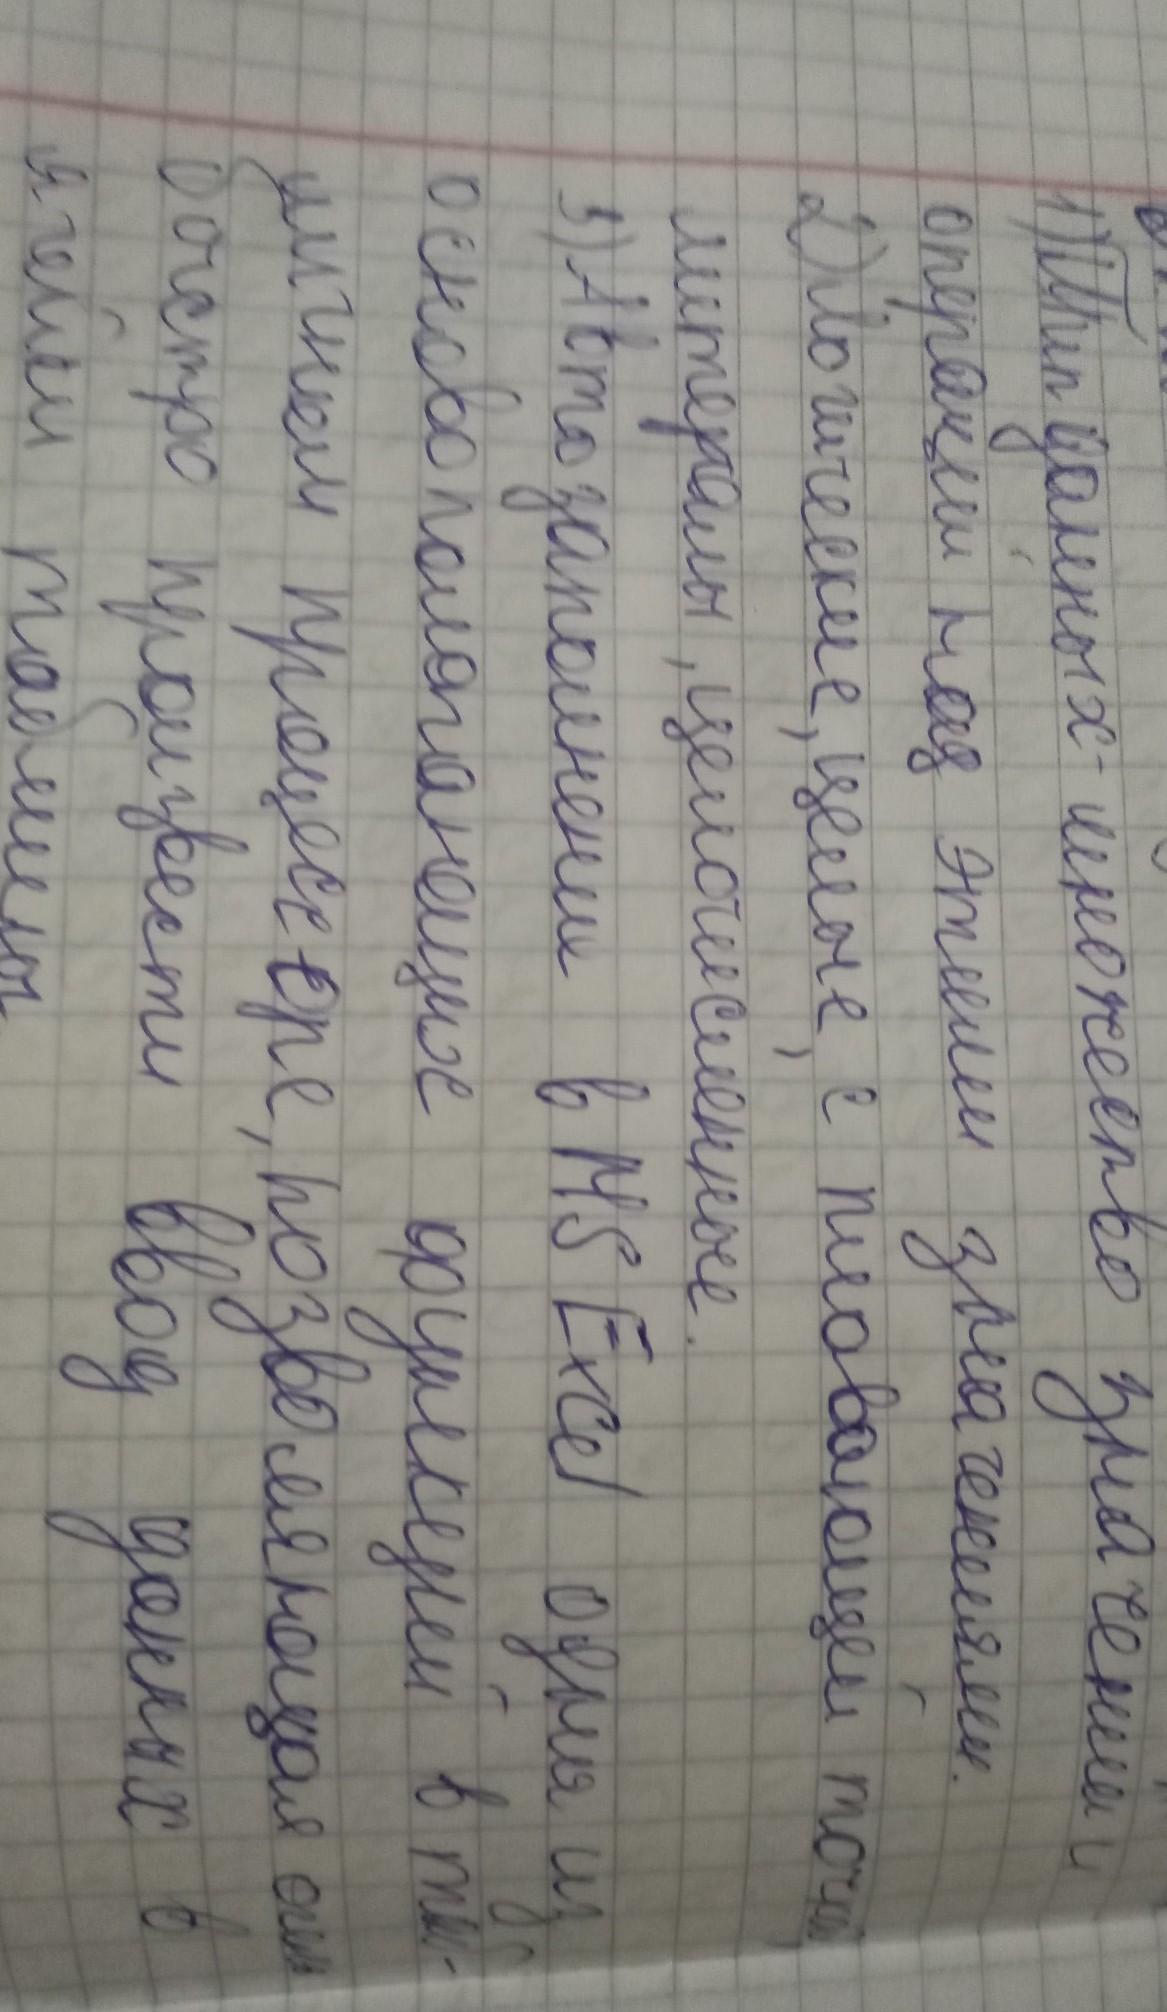 1) Тип данных - множество значений и
операций над этими значениями.
2) Логические, целые, с плавающей точкой,
литералы, целочисленные.
3) Автозаполнение в MS Excel одна из
основополагающих функций в
личном процессоре, позволяющая
быстро произвести ввод данных в
ячейки таблицы